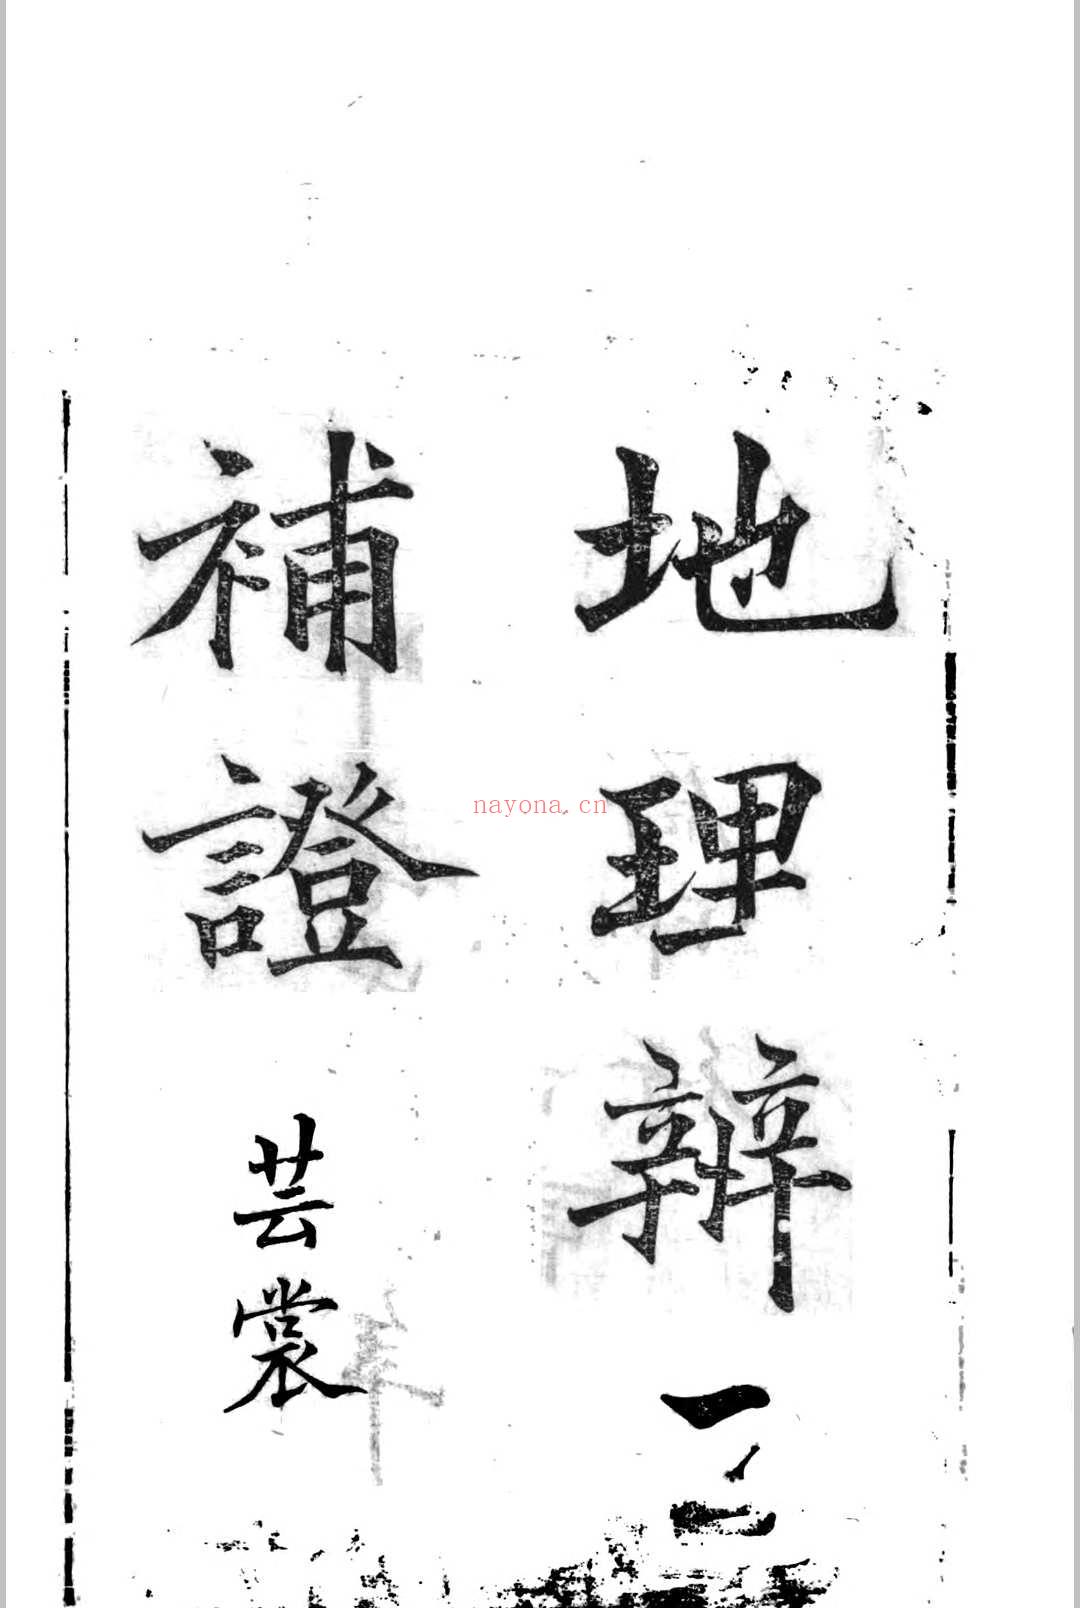 地理辨
補證
芸裳
nayona.cn